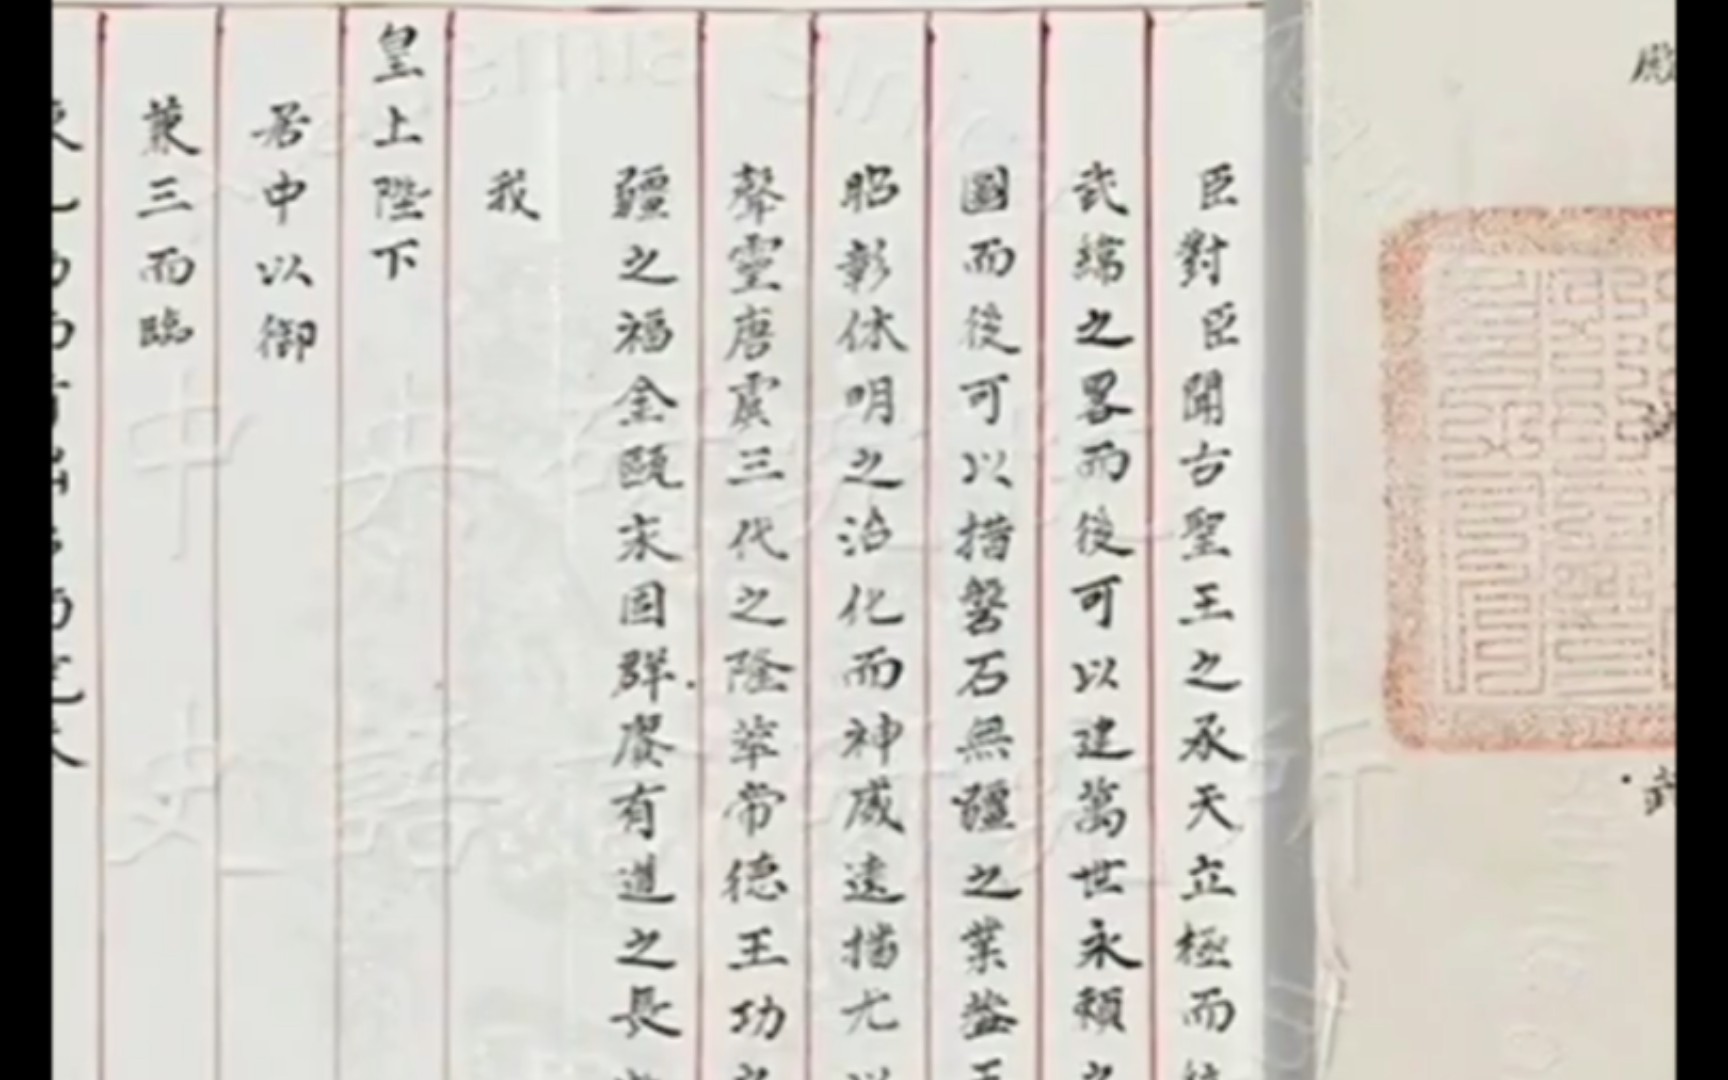 殿
武
臣對臣聞古聖王之承天立極而
武緯之畧而後可以建萬世永賴之
國而後可以措磐石無疆之業蓋王
昭彰休明之治化而神威遠揚尤以
聲靈唐虞三代之隆莘帝德王功之
疆之福金甌永固群黎有道之長
我
皇上陛下
居中以御
兼三而臨